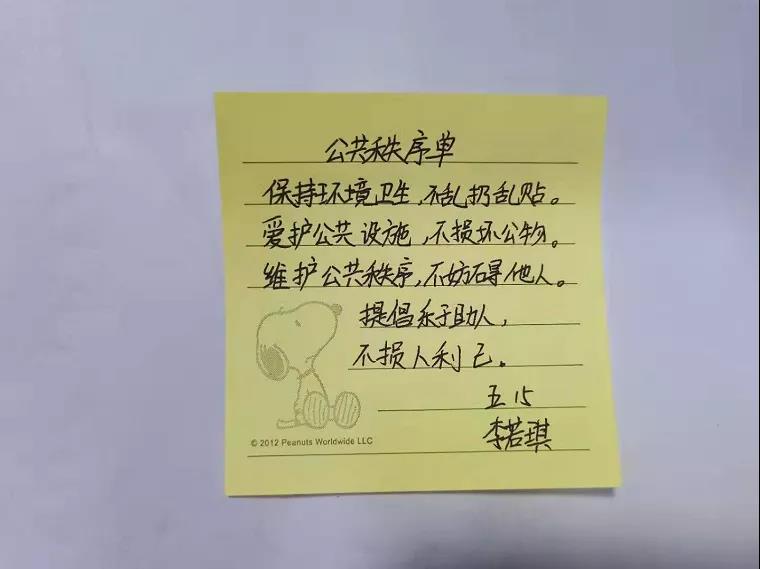 公共秩序单
保持环境卫生，不乱扔乱贴。
爱护公共设施，不损坏公物。
维护公共秩序，不妨碍他人。
提倡乐于助人，
不损人利己。
五15
李若琪
© 2012 Peanuts Worldwide LLC